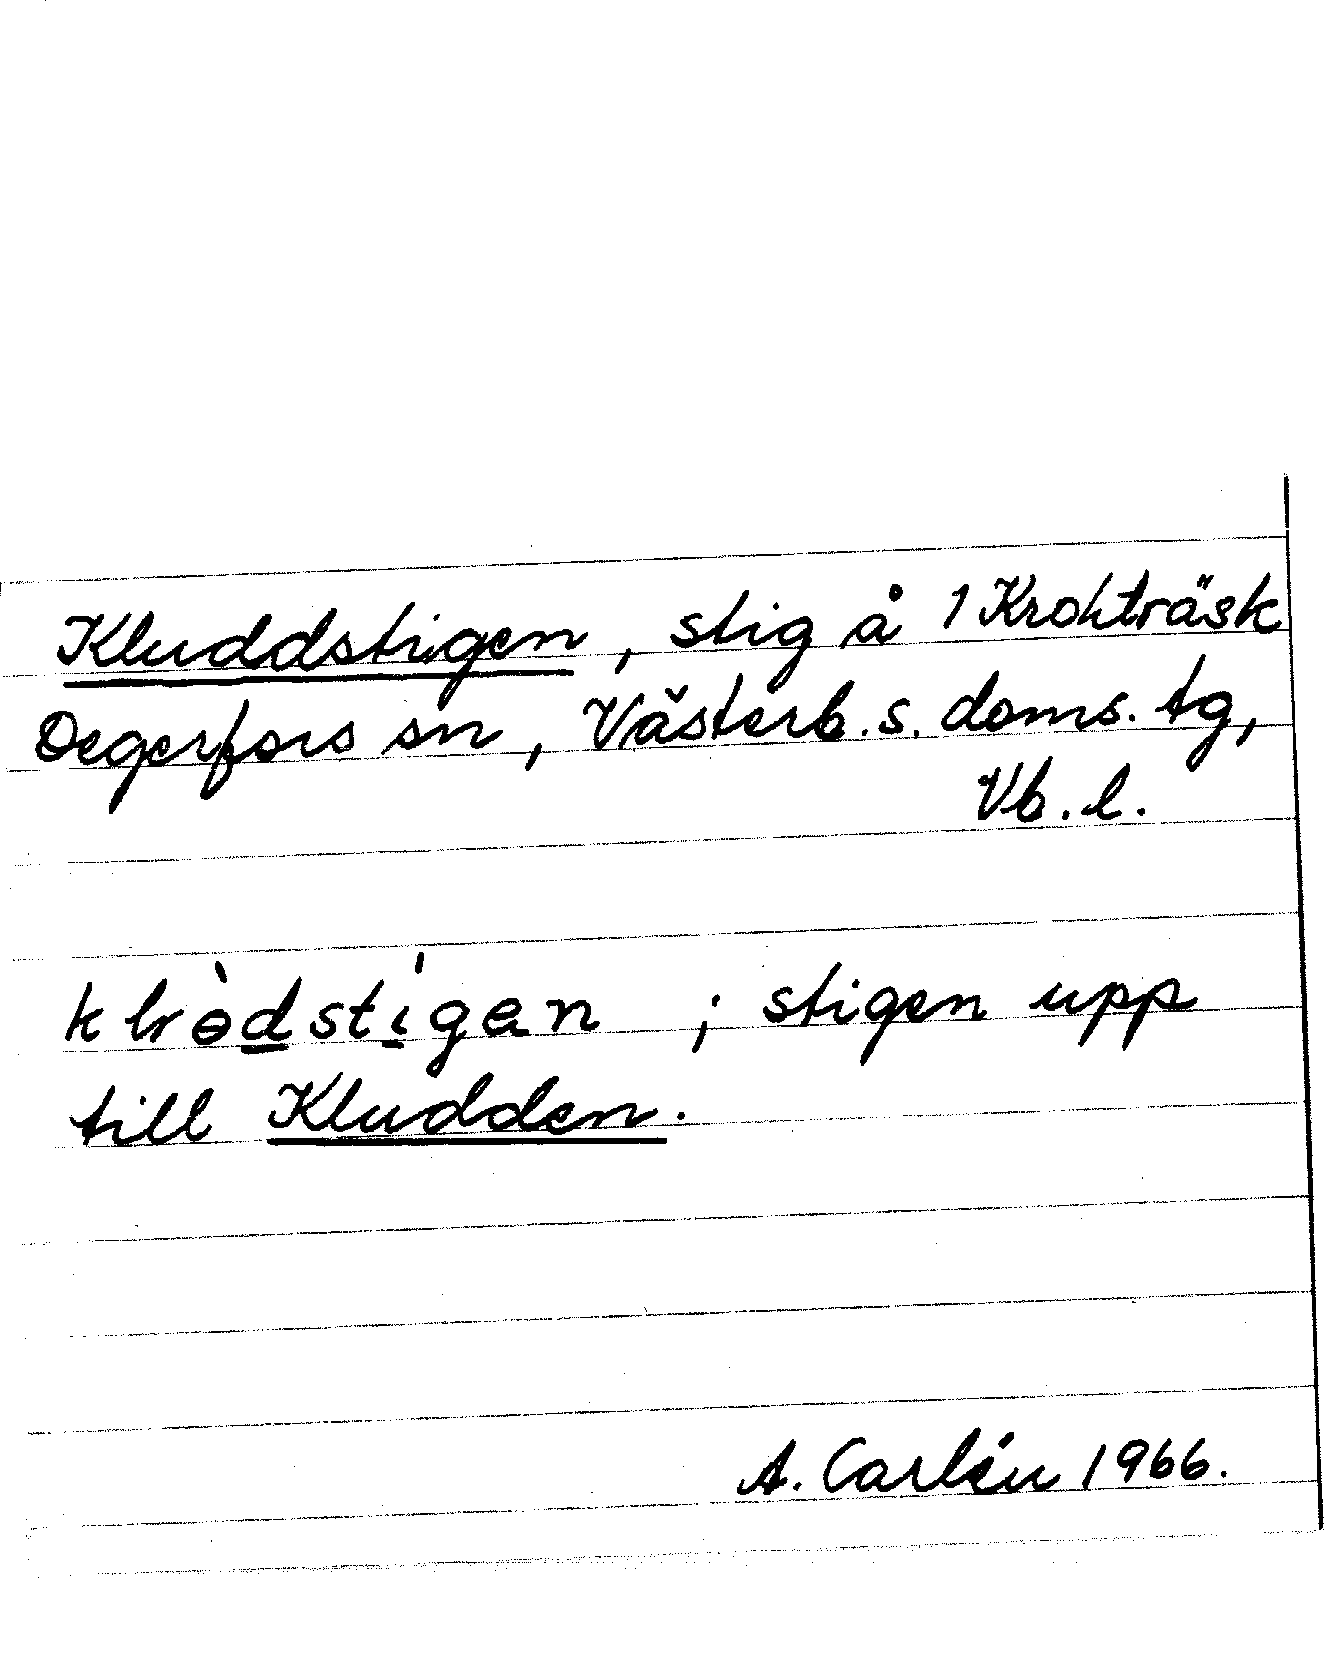 Kluddstigen, stig å 1 Krokträsk
Degerfors sn, Västerb. s. doms. tg,
Vb. l.
; stigen upp
till Kludden.
A. Carlén 1966.